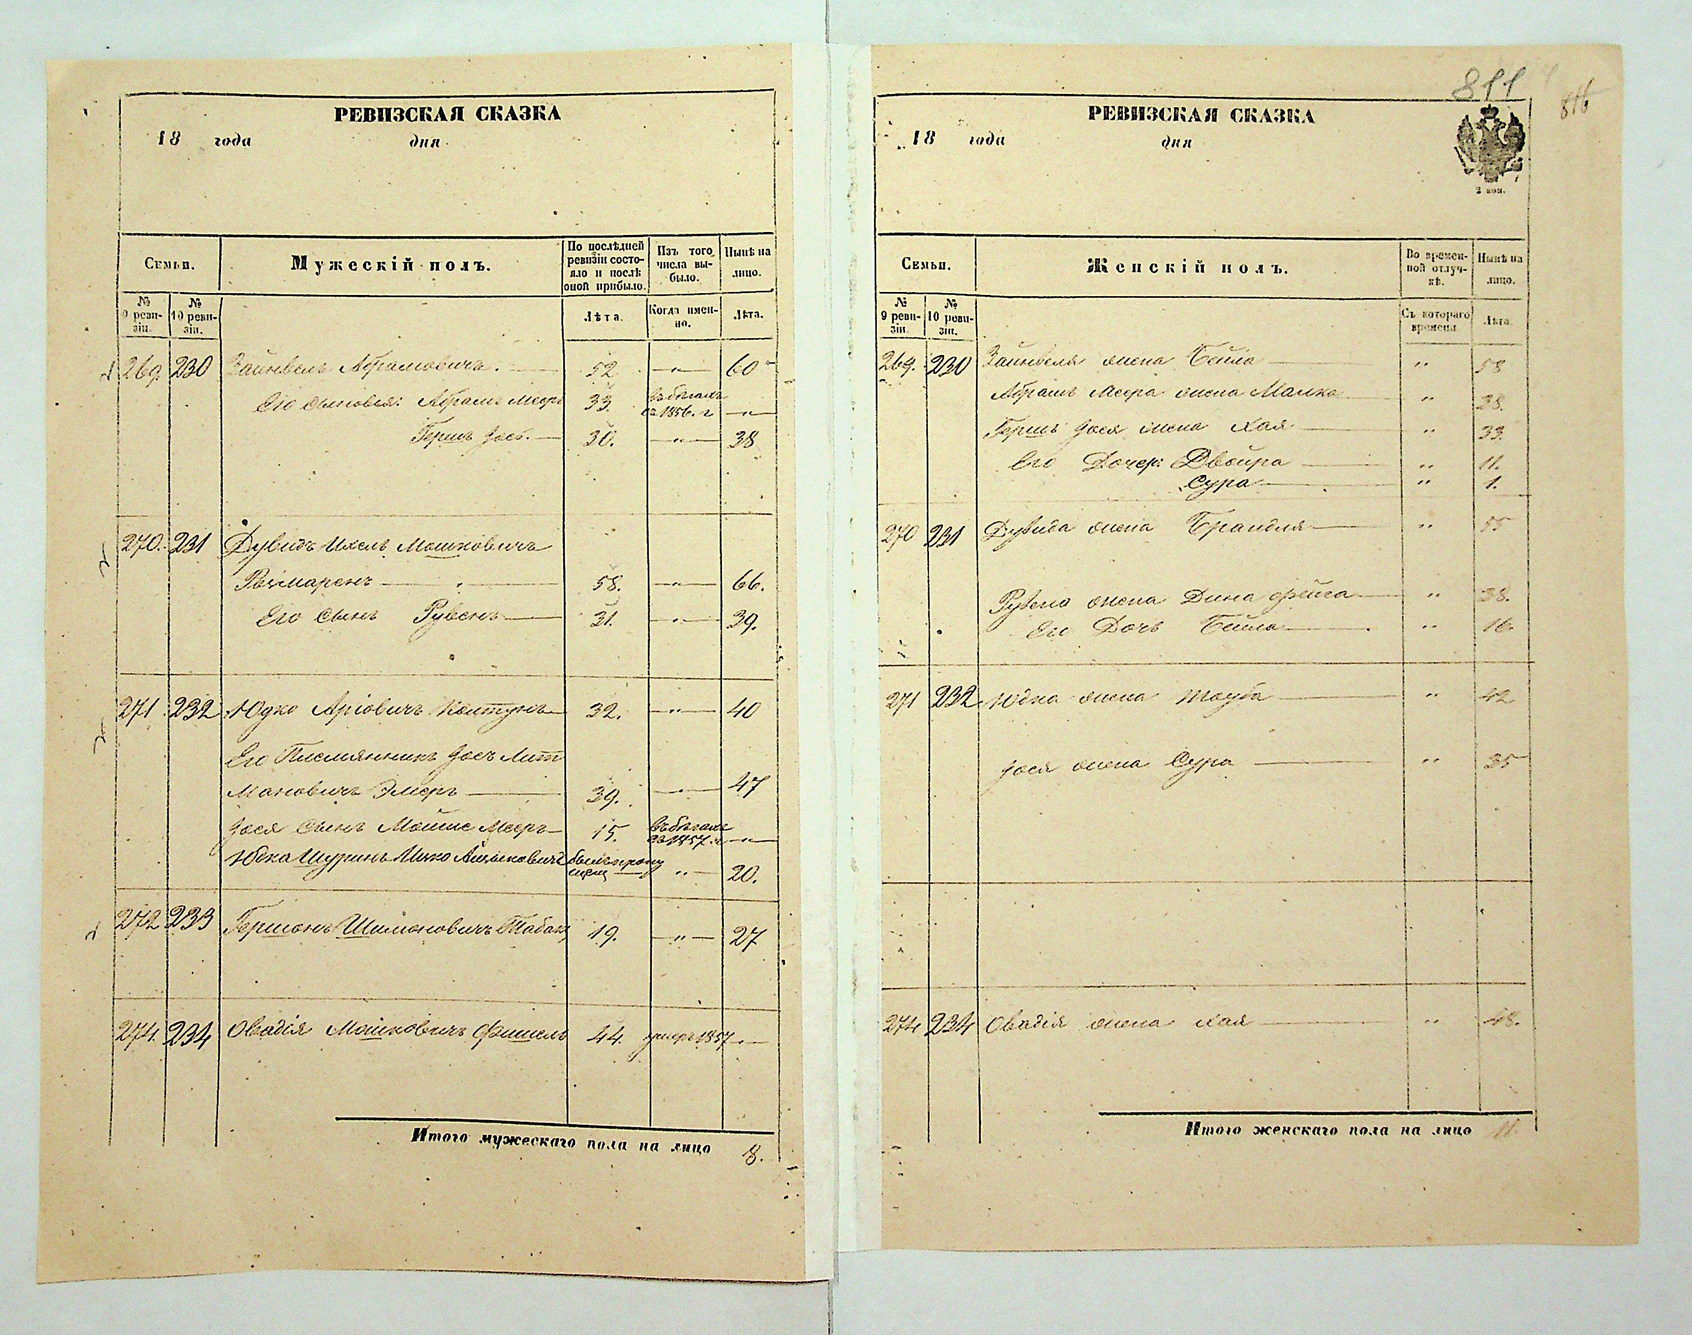 РЕВИЗСКАЯ СКАЗКА
18 года дня
Семьи.
Мужескій полъ.
По послѣдней ревизіи состояло и послѣ оной прибыло.
Изъ того числа выбыло.
Нынѣ на лицо.
№ 9 ревизіи.
№ 10 ревизіи.
Лѣта.
Когда именно.
Лѣта.
269. 230 Зайнвель Абрамовичъ. 52 — " — 60
Его сыновья: Абрамъ Мееръ 33. въ бѣгахъ съ 1856. г — " —
Гершъ Іосъ. 30. — " — 38
270. 231 Дувидъ Ихель Мошковичъ
58. — " — 66.
Его сынъ Рувенъ 31. — " — 39.
271 232 Юдко Аріовичъ Колтунъ 32. — " — 40
Его Племянникъ Іосъ Лит
мановичъ 39. — " — 47
Іося сынъ Мойше Мееръ 15. въ бѣгахъ съ 1857. г — " —
Юдка Шуринъ Ицко былъ пропущен " 20.
272 233 Гершонъ Шимоновичъ 19. — " — 27
274. 234 Овадія Мошковичъ Фишель 44. умеръ 1857 —
Итого мужескаго пола на лицо 8.
811
РЕВИЗСКАЯ СКАЗКА
18 года дня
2 коп.
Семьи.
Женскій полъ.
Во временной отлучкѣ.
Нынѣ на лицо.
№ 9 ревизіи.
№ 10 ревизіи.
Съ котораго времени
Лѣта.
269. 230 Зайнвеля жена Бейла " 58
Абрамъ Меера жена Малка " 38.
Гершъ Іося жена Хая " 33.
Его Дочер: Двойра " 11.
Сура " 1.
270 231 Дувида жена Брандля " 55
Рувена жена Дина Фейга " 38.
Его Дочь Бейла " 16.
271 232 Юдка жена Тауба " 42
Іося жена Сура " 35
274 234 Овадія жена Хая " 48.
Итого женскаго пола на лицо 11.